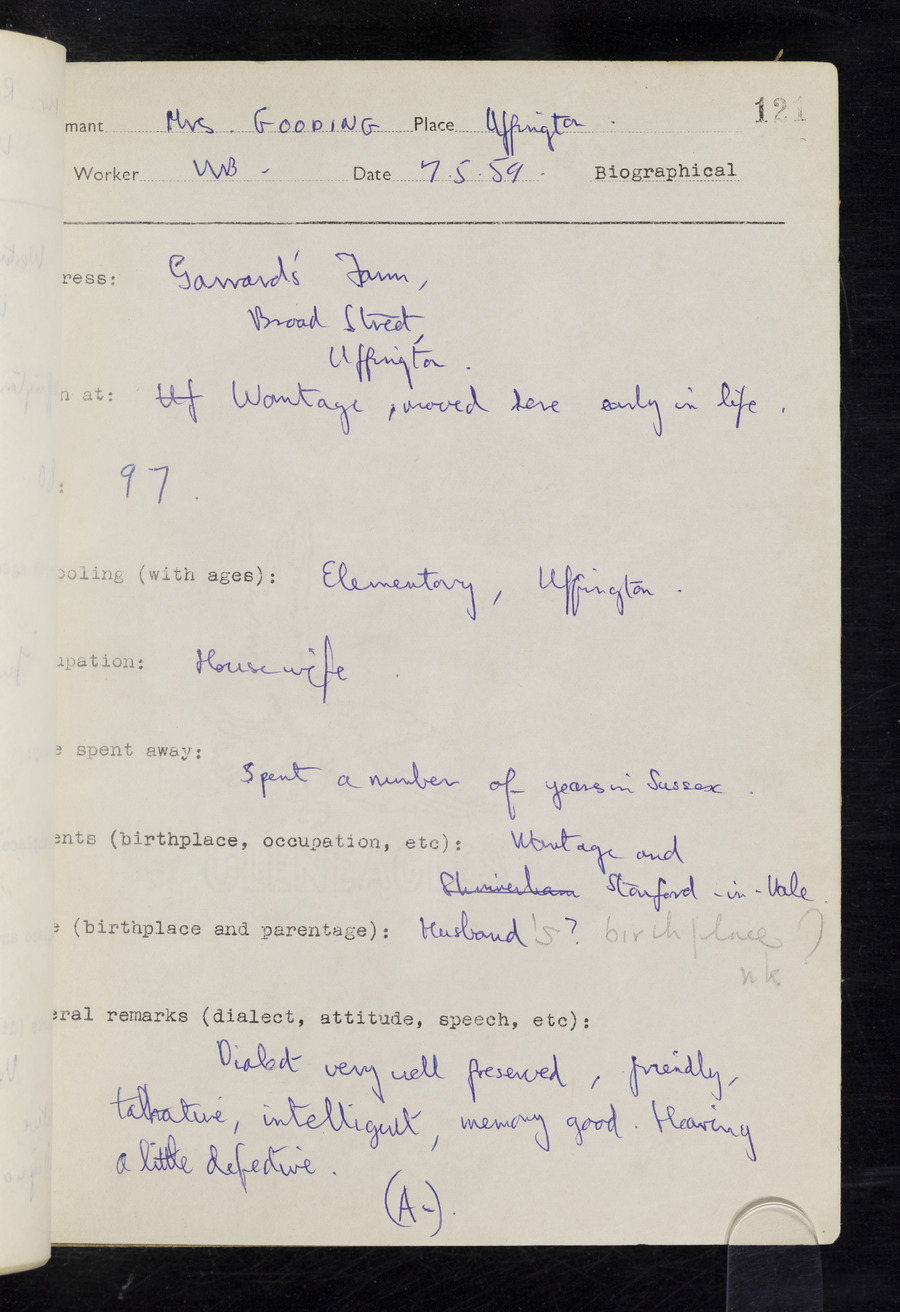 121
mant Mrs. GOODING Place Uffington.
Worker WB - Date 7.5.59. Biographical
ress: Garrard's Farm,
Broad Street,
Uffington.
n at: Uf Wantage, moved here early in life.
: 97.
ooling (with ages): Elementary, Uffington.
upation: Housewife.
e spent away:
Spent a number of years in Sussex.
ents (birthplace, occupation, etc): Wantage and
Shrivenham Stanford-in-Vale.
e (birthplace and parentage): Husband's? birthplace?
nk
eral remarks (dialect, attitude, speech, etc):
Dialect very well preserved, friendly,
talkative, intelligent, memory good. Hearing
a little defective.
(A-).